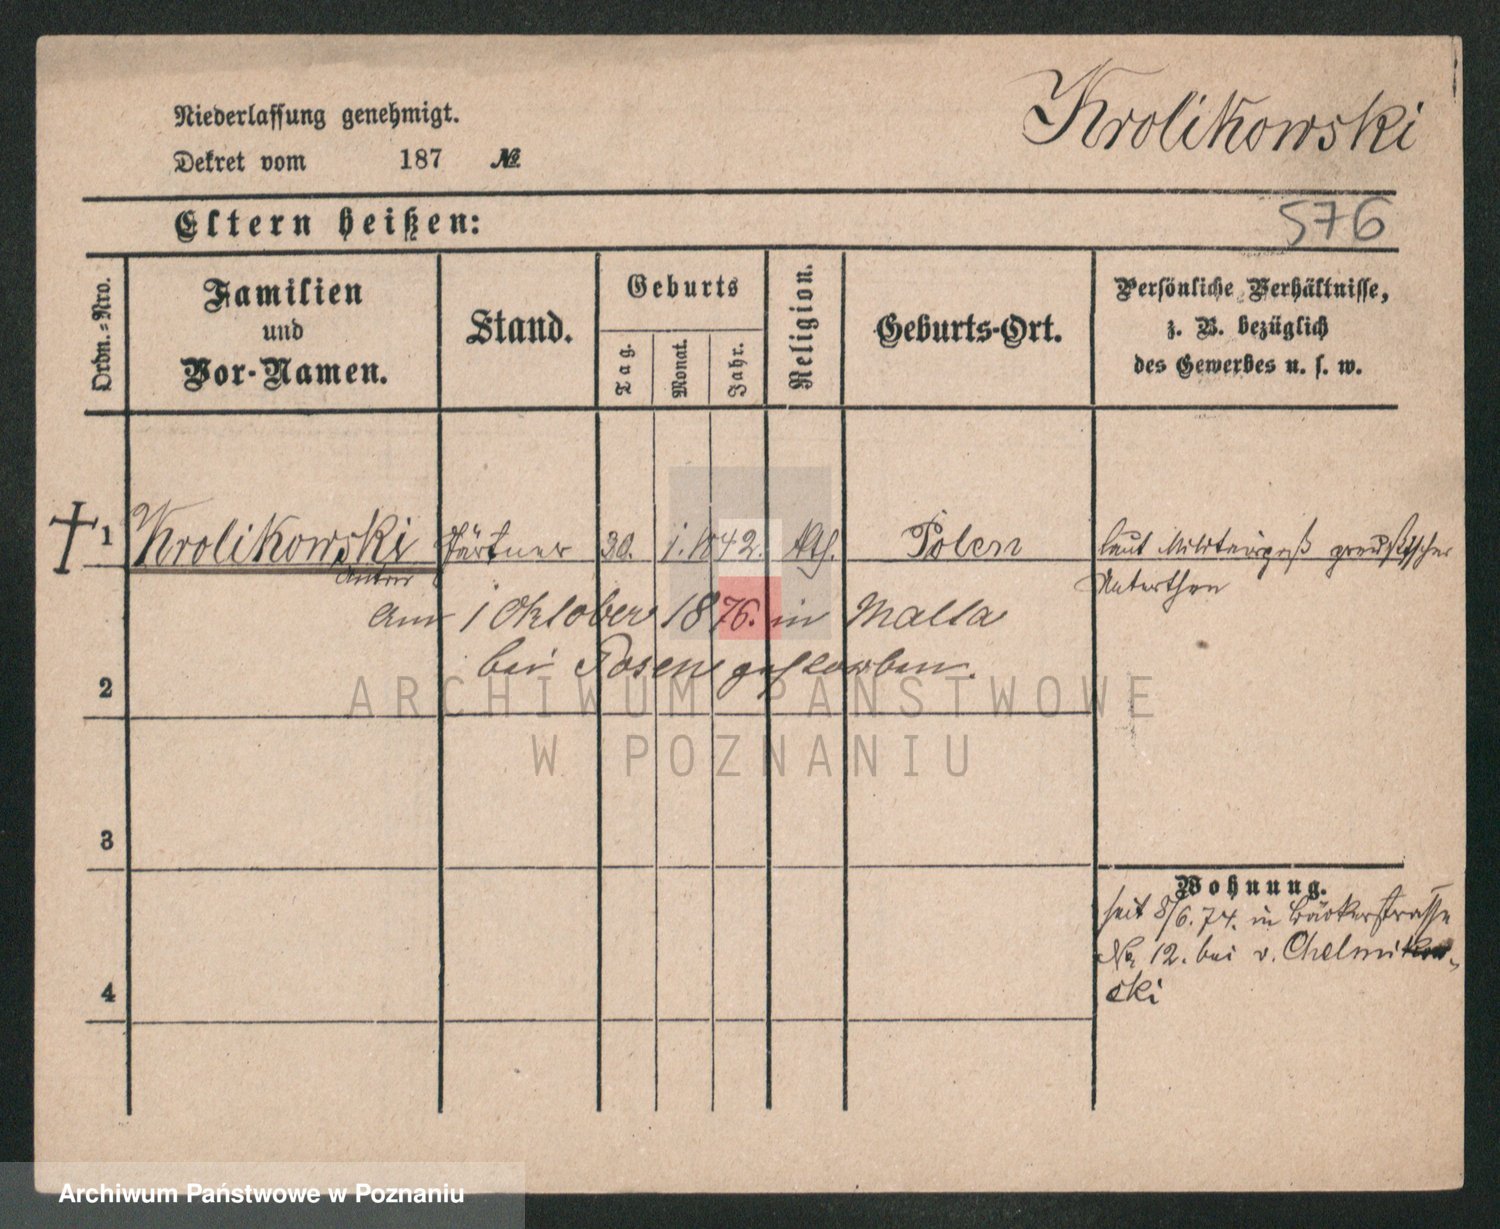 Krolikowski
Niederlassung genehmigt.
Dekret vom 187 №
Eltern heißen:
576
Ordn.-Nro.
Familien
und
Vor-Namen.
Stand.
Geburts
Tag.
Monat.
Jahr.
Religion.
Geburts-Ort.
Persönliche Verhältnisse,
z. B. bezüglich
des Gewerbes u. s. w.
1 Krolikowski Gärtner 30. 1. 1842. kth. Polen laut Militairpaß preußischer
Anton Unterthan
am 1 Oktober 1876. in Malta
bei Posen gestorben.
2
3
4
Wohnung.
seit 8/6. 74. in Bäckerstrasse
No. 12. bei v. Chelmi
ski
ARCHIWUM PAŃSTWOWE
W POZNANIU
Archiwum Państwowe w Poznaniu